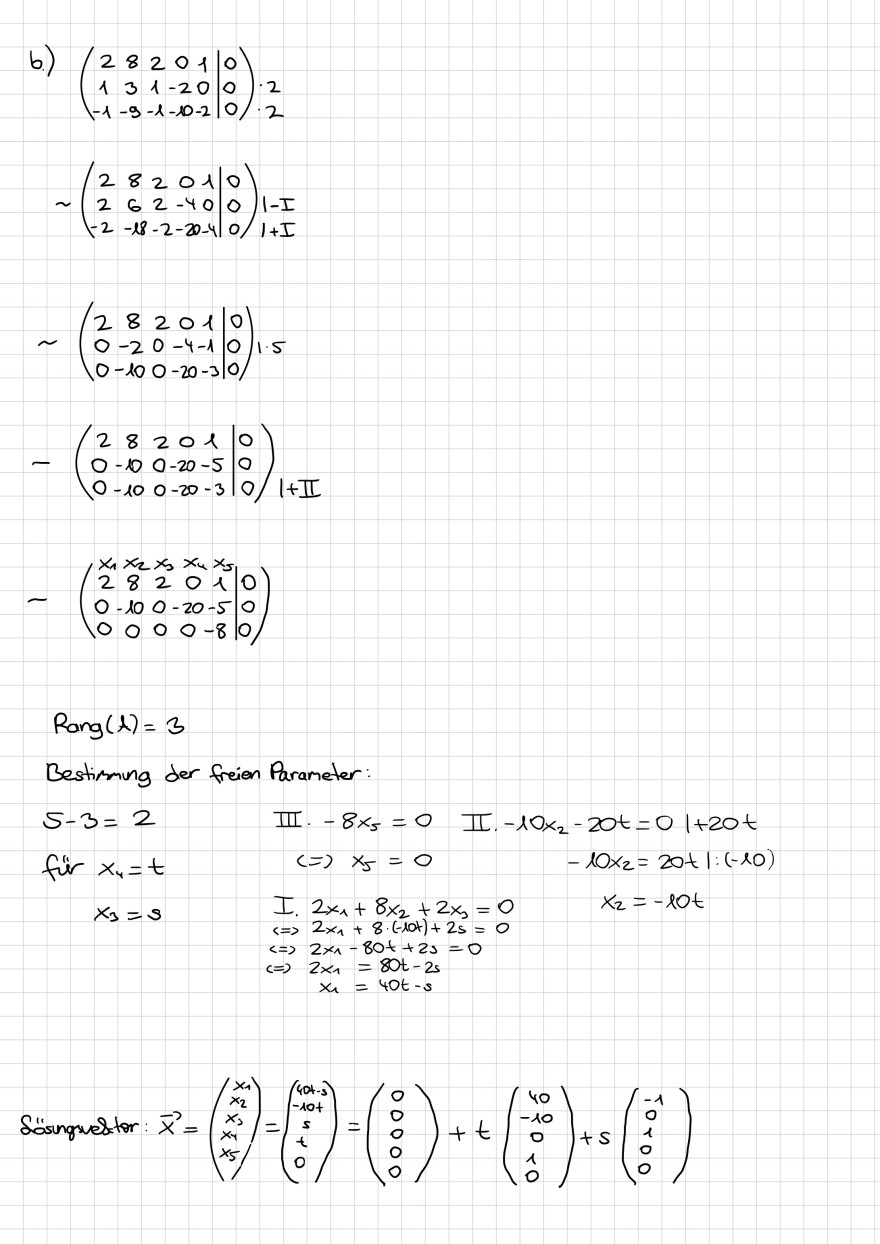 b.) ( 2 8 2 0 1 | 0 )
( 1 3 1 -2 0 | 0 ) ·2
( -1 -9 -1 -10 -2 | 0 ) ·2
~ ( 2 8 2 0 1 | 0 )
( 2 6 2 -4 0 | 0 ) |-I
( -2 -18 -2 -20 -4 | 0 ) |+I
~ ( 2 8 2 0 1 | 0 )
( 0 -2 0 -4 -1 | 0 ) |·5
( 0 -10 0 -20 -3 | 0 )
~ ( 2 8 2 0 1 | 0 )
( 0 -10 0 -20 -5 | 0 )
( 0 -10 0 -20 -3 | 0 ) |+II
x₁ x₂ x₃ x₄ x₅
~ ( 2 8 2 0 1 | 0 )
( 0 -10 0 -20 -5 | 0 )
( 0 0 0 0 -8 | 0 )
Rang(A) = 3
Bestimmung der freien Parameter:
5-3 = 2
für x₄ = t
x₃ = s
III. -8x₅ = 0
<=> x₅ = 0
II. -10x₂ - 20t = 0 |+20t
-10x₂ = 20t |:(-10)
x₂ = -10t
I. 2x₁ + 8x₂ + 2x₃ = 0
<=> 2x₁ + 8·(-10t) + 2s = 0
<=> 2x₁ - 80t + 2s = 0
<=> 2x₁ = 80t - 2s
x₁ = 40t - s
Lösungsvektor: x⃗ = ( x₁ x₂ x₃ x₄ x₅ ) = ( 40t-s -10t s t 0 ) = ( 0 0 0 0 0 ) + t ( 40 -10 0 1 0 ) + s ( -1 0 1 0 0 )